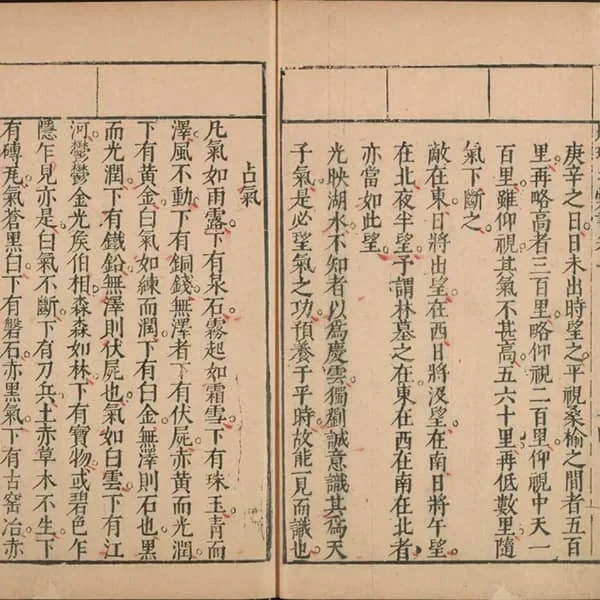 庚辛之日日未出時望之平視桑榆之間者五百
里再略高者三百里略仰視二百里仰視中天一
百里雖仰視其氣不甚高五六十里再低數里隨
氣下斷之
敵在東日將出望在西日將沒望在南日將午望
在北夜半望予謂林墓之在東在西在南在北者
亦當如此望
光映湖水不知者以為慶雲獨劉誠意識其為天
子氣是必望氣之功預養于平時故能一見而識也
占氣
凡氣如雨露下有泉石霧起如霜雪下有珠玉青而
澤風不動下有銅錢無澤者下有伏屍赤黃而光潤
下有黃金白氣如練而潤下有白金無澤則石也黑
而光潤下有鐵鉛無澤則伏屍也氣如白雲下有江
河鬱鬱金光矦伯相森森如林下有寶物或碧色乍
隱乍見亦是白氣不斷下有刀兵土赤草木不生下
有磚瓦氣蒼黑白下有磐石赤黑氣下有古窑冶亦